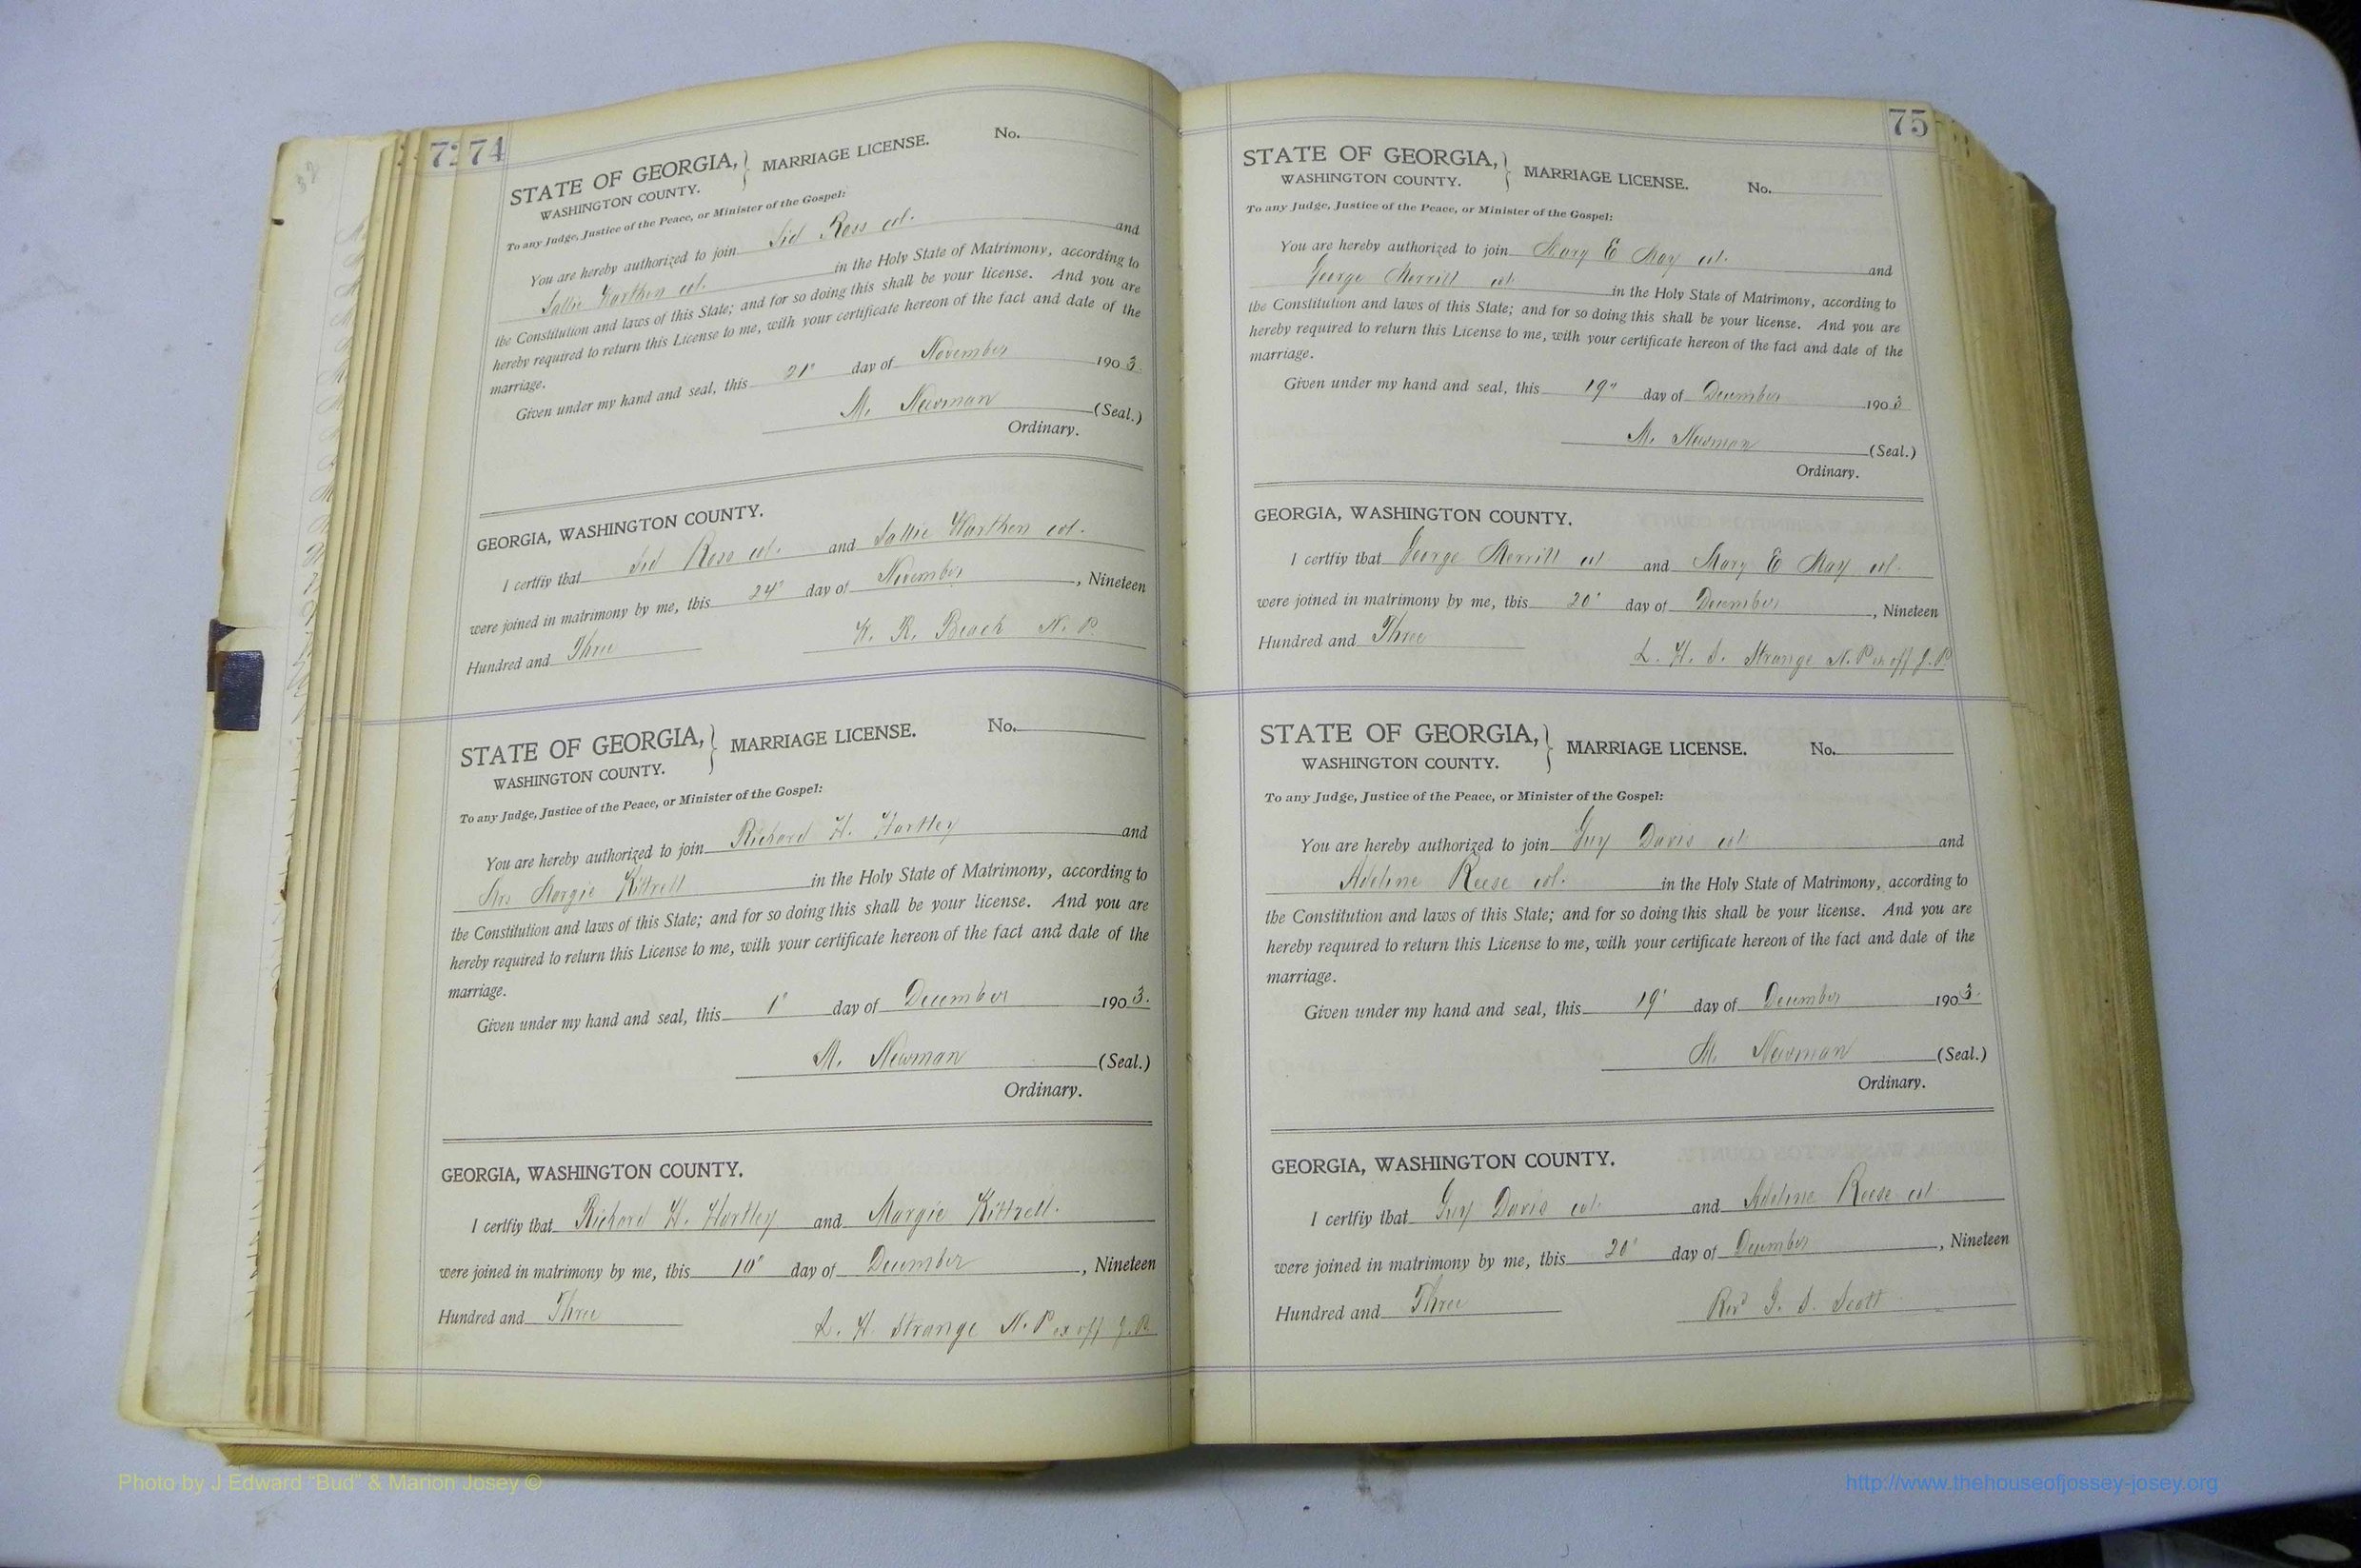 72
74
STATE OF GEORGIA, } MARRIAGE LICENSE. No.
WASHINGTON COUNTY.
To any Judge, Justice of the Peace, or Minister of the Gospel:
You are hereby authorized to join Sid Ross col. and
Sallie Warthen col. in the Holy State of Matrimony, according to
the Constitution and laws of this State; and for so doing this shall be your license. And you are
hereby required to return this License to me, with your certificate hereon of the fact and date of the
marriage.
Given under my hand and seal, this 21" day of November 1903.
M. Newman (Seal.)
Ordinary.
GEORGIA, WASHINGTON COUNTY.
I certfiy that Sid Ross col. and Sallie Warthen col.
were joined in matrimony by me, this 24" day of November, Nineteen
Hundred and Three
W. R. Beach N. P.
STATE OF GEORGIA, } MARRIAGE LICENSE. No.
WASHINGTON COUNTY.
To any Judge, Justice of the Peace, or Minister of the Gospel:
You are hereby authorized to join Richard H. Hartley and
Mrs Margie Kittrell in the Holy State of Matrimony, according to
the Constitution and laws of this State; and for so doing this shall be your license. And you are
hereby required to return this License to me, with your certificate hereon of the fact and date of the
marriage.
Given under my hand and seal, this 1" day of December 1903.
M. Newman (Seal.)
Ordinary.
GEORGIA, WASHINGTON COUNTY.
I certfiy that Richard H. Hartley and Margie Kittrell.
were joined in matrimony by me, this 10" day of December, Nineteen
Hundred and Three
L. H. Strange N. P ex off J. P.
75
STATE OF GEORGIA, } MARRIAGE LICENSE. No.
WASHINGTON COUNTY.
To any Judge, Justice of the Peace, or Minister of the Gospel:
You are hereby authorized to join Mary E May col. and
George Merrill col. in the Holy State of Matrimony, according to
the Constitution and laws of this State; and for so doing this shall be your license. And you are
hereby required to return this License to me, with your certificate hereon of the fact and date of the
marriage.
Given under my hand and seal, this 19" day of December 1903
M. Newman (Seal.)
Ordinary.
GEORGIA, WASHINGTON COUNTY.
I certfiy that George Merrill col and Mary E May col.
were joined in matrimony by me, this 20" day of December, Nineteen
Hundred and Three
L. H. S. Strange N. P ex off J. P.
STATE OF GEORGIA, } MARRIAGE LICENSE. No.
WASHINGTON COUNTY.
To any Judge, Justice of the Peace, or Minister of the Gospel:
You are hereby authorized to join Guy Davis col and
Adeline Reese col. in the Holy State of Matrimony, according to
the Constitution and laws of this State; and for so doing this shall be your license. And you are
hereby required to return this License to me, with your certificate hereon of the fact and date of the
marriage.
Given under my hand and seal, this 19" day of December 1903.
M. Newman (Seal.)
Ordinary.
GEORGIA, WASHINGTON COUNTY.
I certfiy that Guy Davis col. and Adeline Reese col
were joined in matrimony by me, this 20" day of December, Nineteen
Hundred and Three
Rev G. S. Scott
Photo by J Edward “Bud” & Marion Josey ©
http://www.thehouseofjossey-josey.org